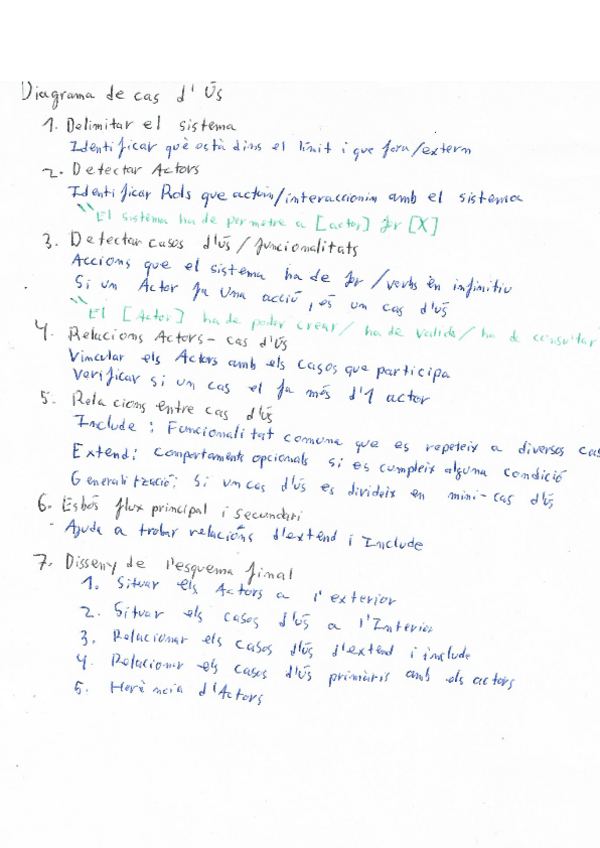 Diagrama de cas d'ús
1. Delimitar el sistema
Identificar què està dins el límit i que fora/extern
2. Detectar Actors
Identificar Rols que actuin/interaccionin amb el sistema
"El sistema ha de permetre a [actor] fer [X]
3. Detectar casos d'ús / funcionalitats
Accions que el sistema ha de fer / verbs en infinitiu
Si un Actor fa una acció, és un cas d'ús
"El [Actor] ha de poder crear/ ha de validar/ ha de consultar
4. Relacions Actors - cas d'ús
Vincular els Actors amb els casos que participa
Verificar si un cas el fa més d'1 actor
5. Relacions entre cas d'ús
Include: Funcionalitat comuna que es repeteix a diversos cas
Extend: Comportaments opcionals si es cumpleix alguna condició
Generalització: Si un cas d'ús es divideix en mini-cas d'ús
6. Esbós flux principal i secundari
- Ajuda a trobar relacións d'extend i Include
7. Disseny de l'esquema final
1. Situar els Actors a l'exterior
2. Situar els casos d'ús a l'Interior
3. Relacionar els casos d'ús d'extend i include
4. Relacionar els casos d'ús primàris amb els actors
5. Herència d'Actors